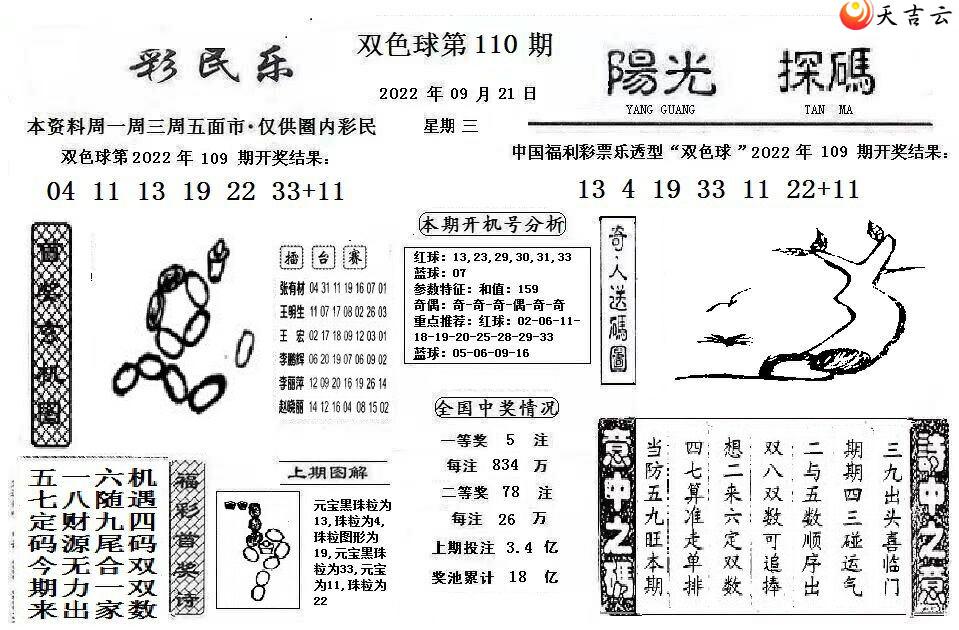 天吉云
彩民乐
双色球第110期
2022年09月21日
星期三
陽光 探碼
YANG GUANG TAN MA
本资料周一周三周五面市·仅供圈内彩民
双色球第2022年109期开奖结果：
04 11 13 19 22 33+11
中国福利彩票乐透型“双色球”2022年109期开奖结果：
13 4 19 33 11 22+11
擂台赛
张有材 04 31 11 19 16 07 01
王明生 11 07 17 08 02 26 03
王 宏 02 17 18 09 12 03 01
李鹏辉 06 20 19 07 06 09 02
李丽萍 12 09 20 16 19 26 14
赵晓丽 14 12 16 04 08 15 02
本期开机号分析
红球：13,23,29,30,31,33
蓝球：07
参数特征：和值：159
奇偶：奇-奇-奇-偶-奇-奇
重点推荐：红球：02-06-11-
18-19-20-25-28-29-33
蓝球：05-06-09-16
奇人送碼圖
全国中奖情况
一等奖 5 注
每注 834 万
二等奖 78 注
每注 26 万
上期投注 3.4 亿
奖池累计 18 亿
福彩首奖诗
机遇四码双双数
六随九尾合一家
一八财源无力出
五七定码今期来
上期图解
元宝黑珠粒为
13,珠粒为4,
珠粒图形为
19,元宝黑珠
粒为33,元宝
为11,珠粒为
22
三九出头喜临门
期期四三碰运气
二与五数顺序出
双八双数可追捧
想二来六定双数
四七算准走单排
当防五九旺本期